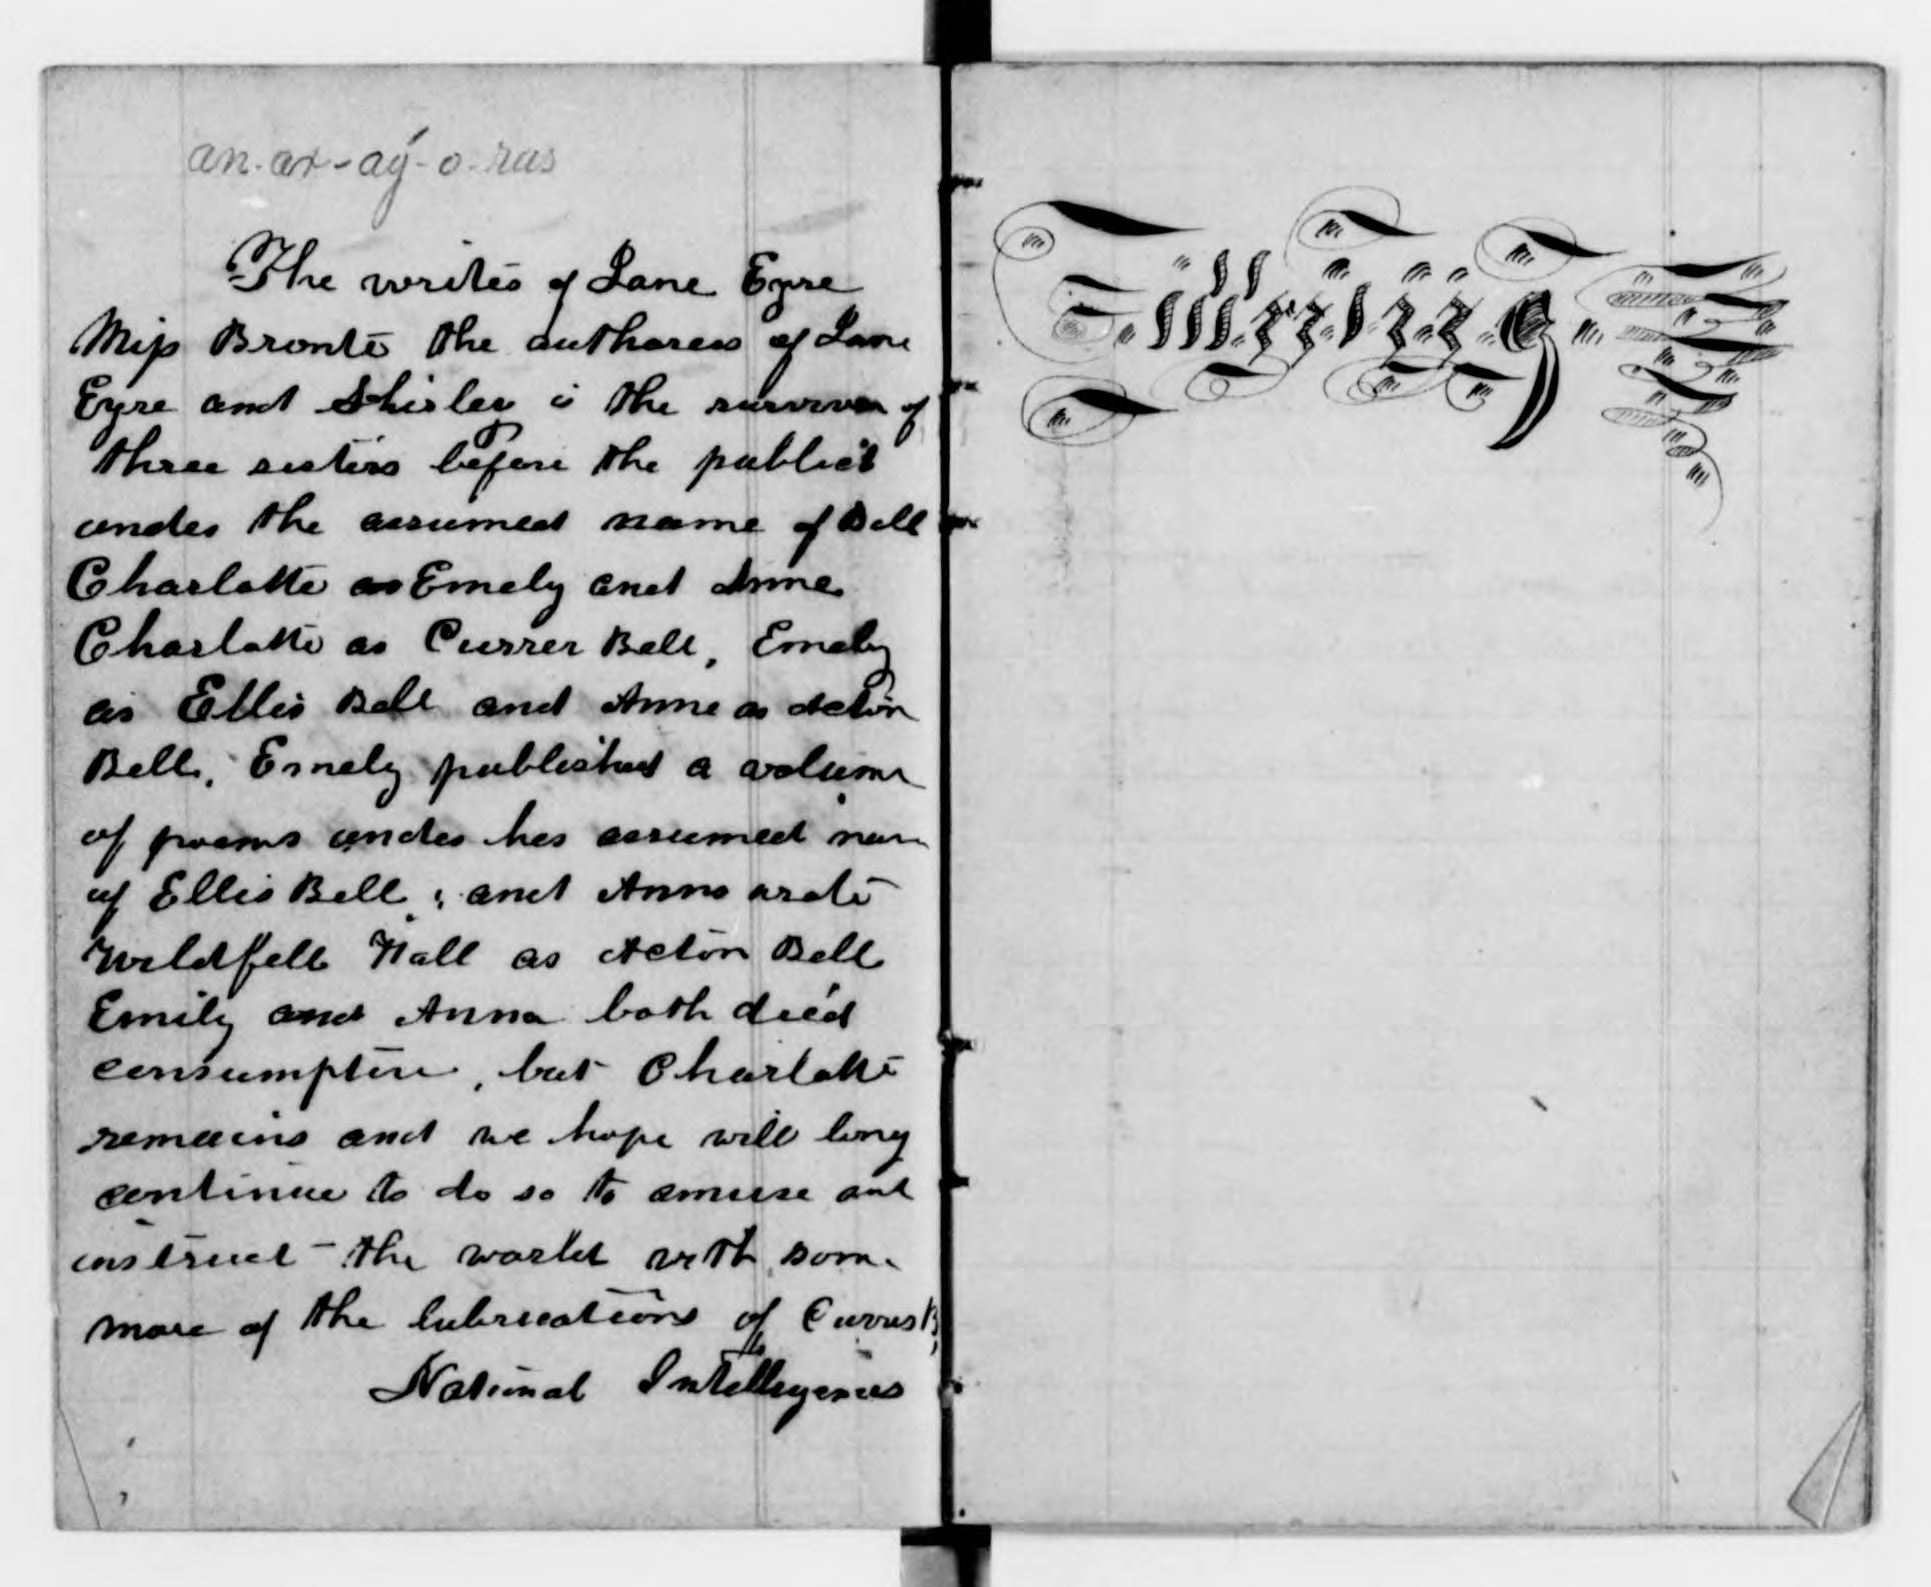 an-ax-ag-o-ras
The writer of Jane Eyre
Miss Bronte the authoress of Jane
Eyre and Shirley is the survivor of
three sisters before the public
under the assumed name of Bell
Charlotte as Emely and Anne
Charlotte as Currer Bell, Emely
as Ellis Bell and Anne as Acton
Bell, Emely published a volume
of poems under her assumed name
of Ellis Bell; and Anna wrote
Wildfell Hall as Acton Bell
Emily and Anna both died
consumptive, but Charlotte
remains and we hope will long
continue to do so to amuse and
instruct the world with some
more of the lubrications of Currer B
National Intelligencer